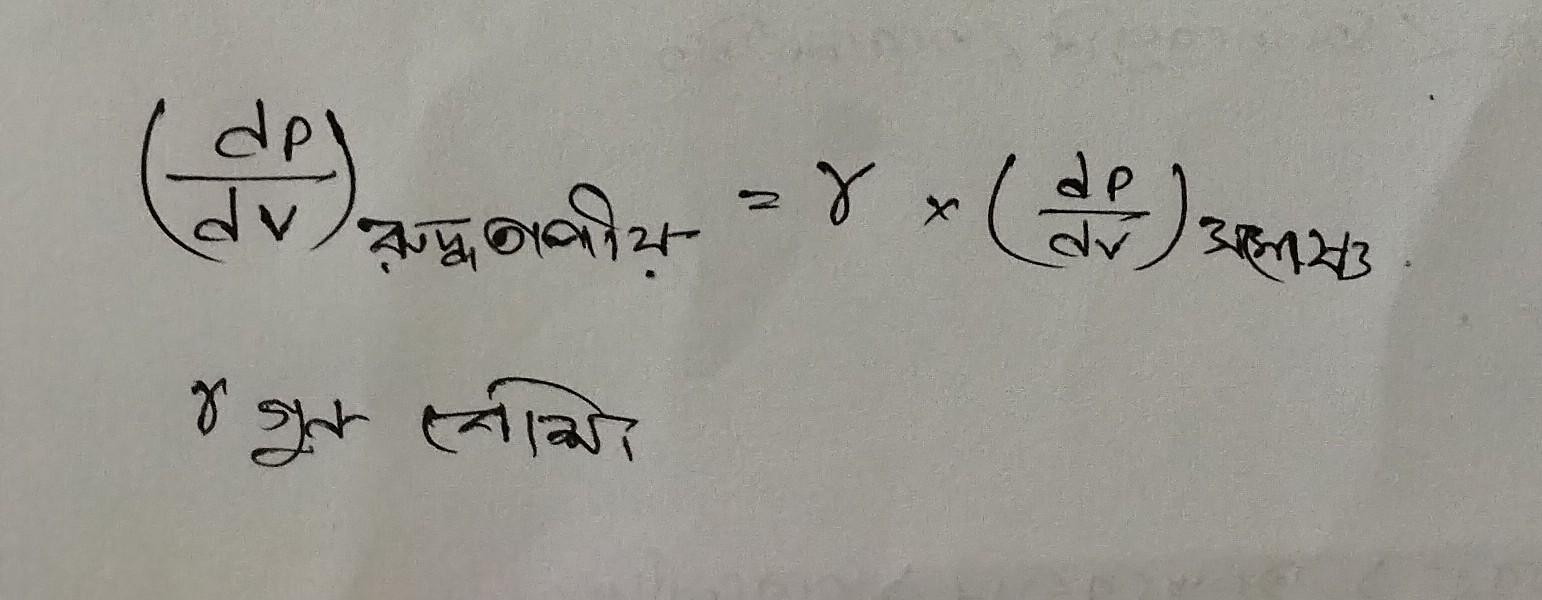 (dP/dV)রুদ্ধতাপীয় = γ × (dP/dV)সমোষ্ণ
γ গুন বেশি।